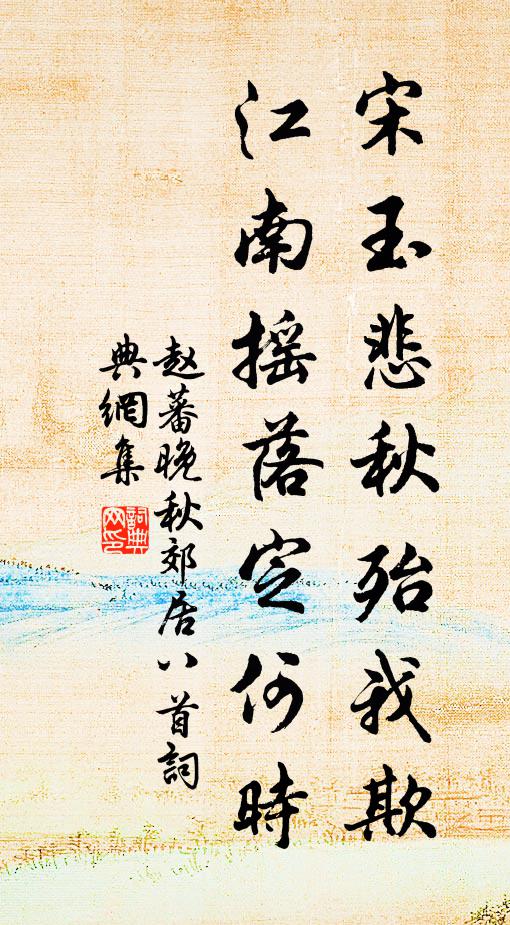 宋玉悲秋殆我欺
江南摇落定何時
赵蕃晚秋郊居八首詞
典網集
詞典
网印